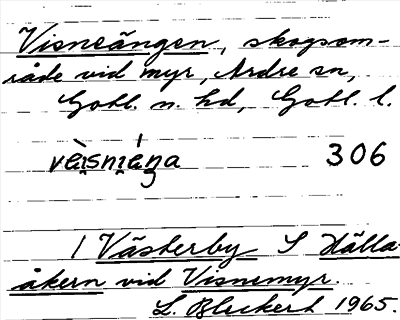 Visneängen, skogsom-
råde vid myr, Ardre sn,
Gotl. n. hd, Gotl. l.
306
I Västerby S Hälla-
åkern vid Visnemyr.
L. Bleckert 1965.